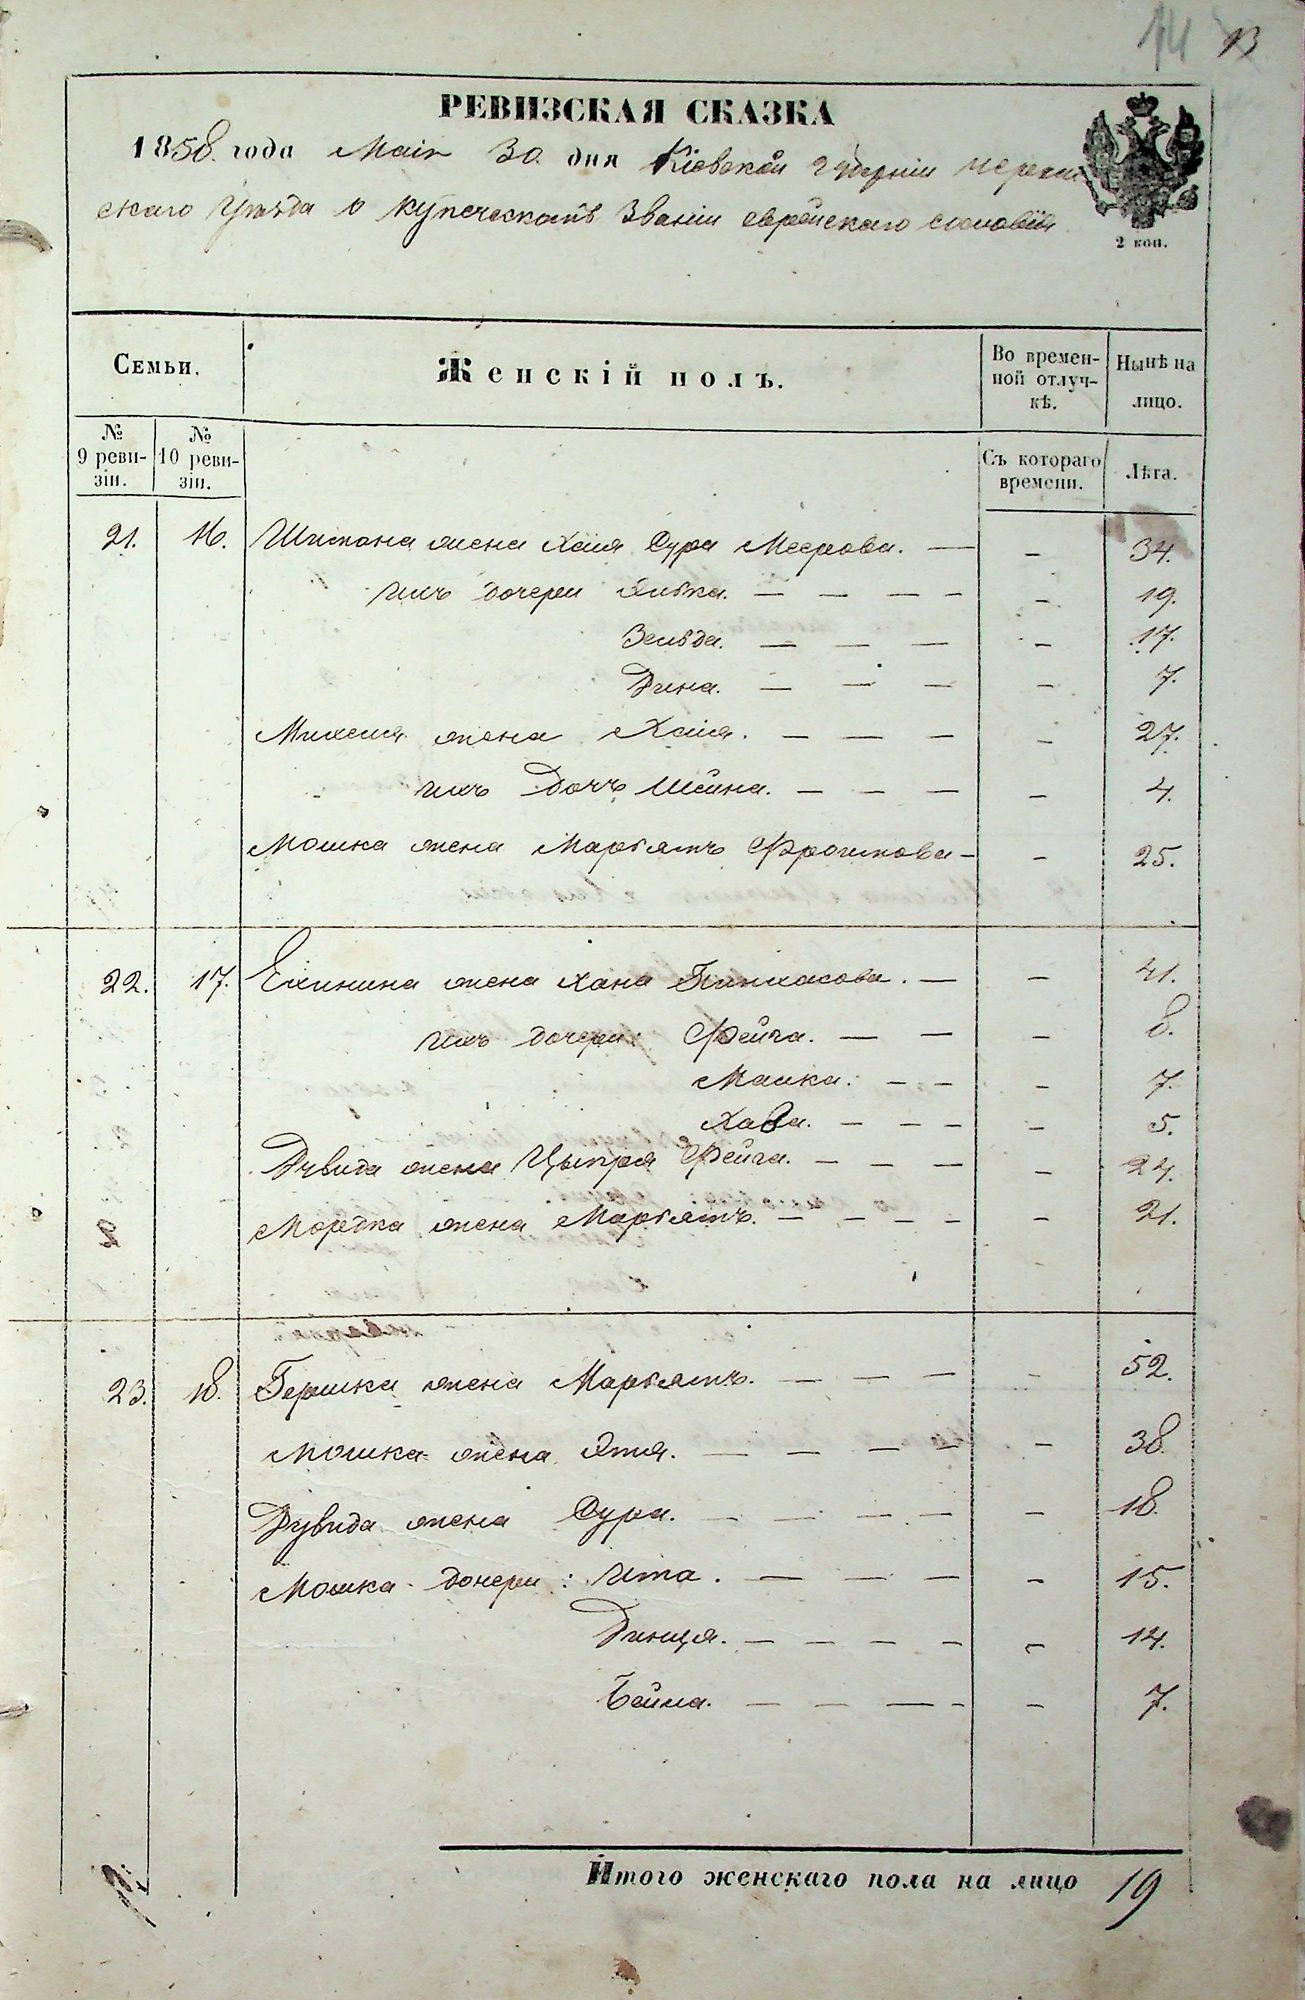 14 13
РЕВИЗСКАЯ СКАЗКА
1858. года Маія 30. дня Кіевской губерніи Черкас
скаго Уѣзда о купеческомъ Званіи еврейскаго сословія
2 коп.
Семьи. Женскій полъ. Во времен-ной отлуч-кѣ. Нынѣ на лицо.
№ 9 реви-зіи. № 10 реви-зіи. Съ котораго времени. Лѣта.
21. 16. Шимона жена Хаія Сура Меерова. — - 34.
ихъ дочери — — — — - 19.
Зельда. — — — - 17.
Дина. — — — - 7.
Михеля жена Хаія. — — — - 27.
ихъ дочь Шейна. — — — - 4.
Мошка жена Марьямъ Фроимова — - 25.
22. 17. жена Хана Пинхасова. — - 41.
ихъ дочери: Фейга. — — - 8.
Малка. — — - 7.
Хава. — — — - 5.
Дувида жена Цыпря Фейга. — — — - 24.
Мордка жена Марьямъ. — — — — - 21.
2
23. 18. Гершка жена Марьямъ. — — — - 52.
Мошка жена — — — — - 38.
Дувида жена Сура. — — — — - 18.
Мошка дочери: Ита. — — — - 15.
Динця. — — — — - 14.
Бейла. — — — - - 7.
Итого женскаго пола на лицо 19